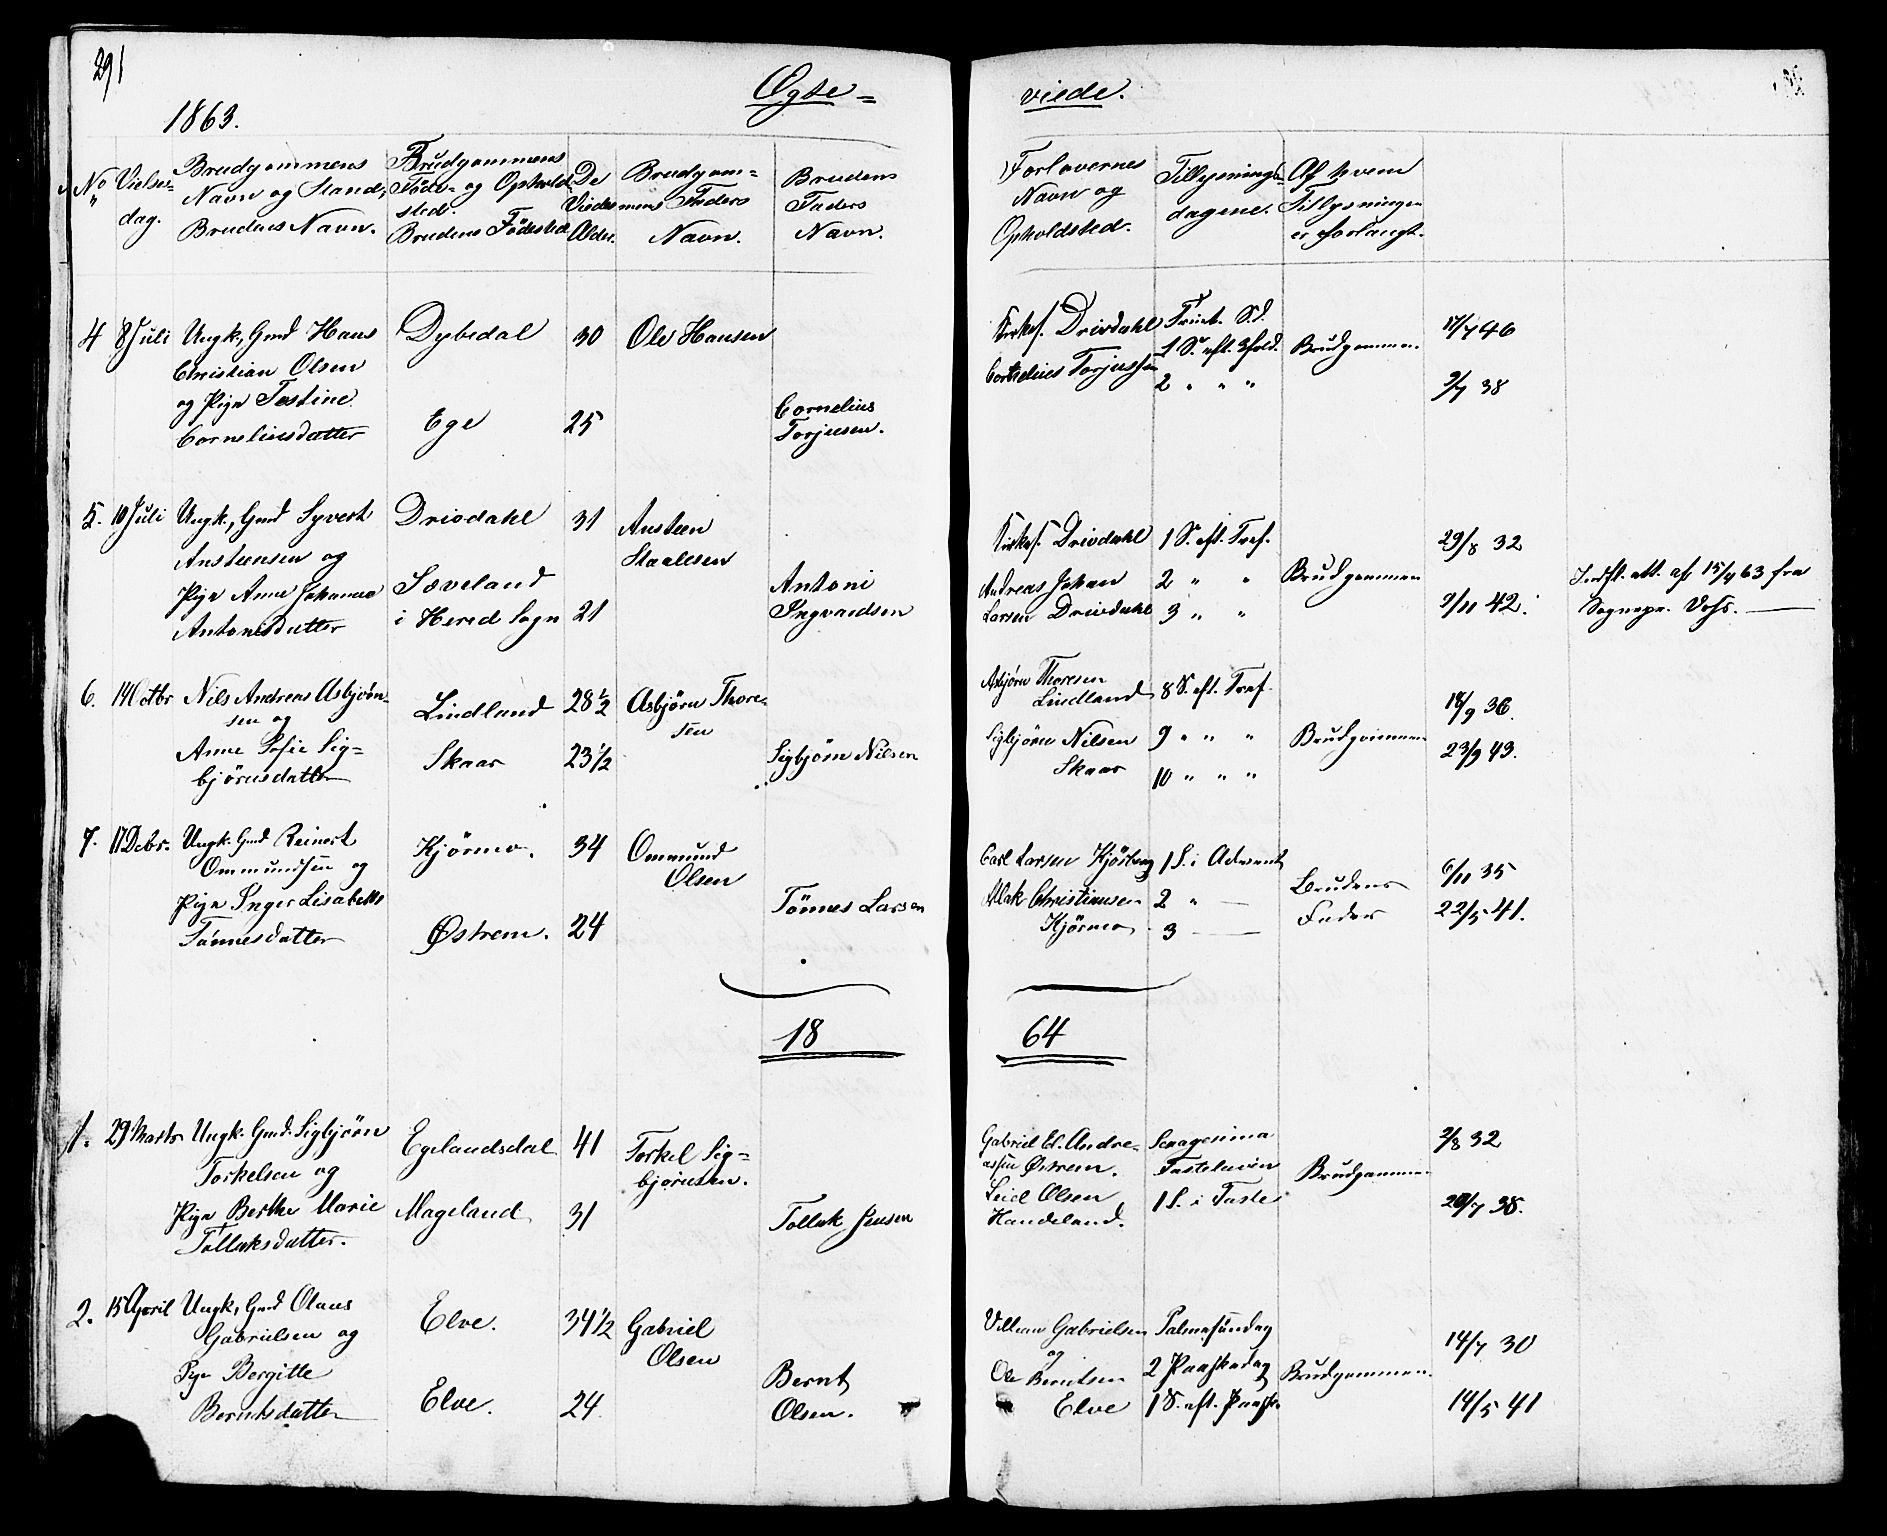 291
1863.
Ægte=
viede.
No
Vielses-
dag.
Brudgommens
Navn og Stand,
Brudens Navn.
Brudgommens
Føde- og Ophold
sted.
Brudens Fødested
De
Viedes
Alder.
Brudgom=
mens Faders
Navn.
Brudens
Faders
Navn.
Forlovernes
Navn og
Opholdsted.
Tillysnings-
dagene.
Af hvem
Tillysningen
er forlangt.
4
8 Juli
Ungk, Gmd Hans
Christian Olsen
og Pige Tostine
Corneliusdatter
Dybedal
Ege
30
25
Ole Hansen
Cornelius
Torjusen.
Kirkes. Drivdahl
Cornelius Torjussen
Trinit. S.d.
1 S. eft. 3fold.
2 " " "
Brudgommen
17/7 46
9/7 38
5.
10 Juli
Ungk, Gmd Syvert
Ansteensen og
Pige Anne Johanne
Antonisdatter
Drivdahl
Sæveland
i Hered Sogn
31
21
Ansteen
Staalesen
Antoni
Ingvardsen
Kirkes. Drivdahl
Andreas Johan
Larsen Drivdahl
1 S. eft. Tref.
2 " "
3 " "
Brudgommen
29/8 32
9/11 42.
Indfl. att. af 15/4 63 fra
Sognepr. Vohs.
6.
14 Octbr
Nils Andreas Asbjørn-
sen og
Anne Sofie Sig=
bjørnsdatter
Lindland
Skaar
28 1/2
23 1/2
Asbjørn Thore-
sen
Sigbjørn Nilsen
Asbjørn Thoresen
Lindland
Sigbjørn Nilsen
Skaar
8 S. eft. Tref.
9 " " "
10 " " "
Brudgommen
18/9 36.
23/9 43.
7.
17 Dcbr.
Ungk. Gmd Reinert
Ommundsen og
Pige Inger Lisabeth
Tønnesdatter
Kjørmo.
Østrem.
34
24
Ommund
Olsen
Tønnes Larsen
Carl Larsen Kjørberg
Aslak Christiansen
Kjørmo
1 S. i Advent
2 "
3
Brudens
Fader
6/11 35
22/5 41.
18
64
1.
29 Marts
Ungk. Gmd. Sigbjørn
Torkelsen og
Pige Berthe Marie
Tollaksdatter.
Egelandsdal
Mageland
41
31
Torkel Sig=
bjørnsen.
Tollak Jensen
Gabriel El. Andre-
assen Østrem.
Leid Olsen
Handeland.
Sexagesima
Fastelavn
1 S. i Faste
Brudgommen
2/8 32
20/7 38.
2.
15 April
Ungk, Gmd Olaus
Gabrielsen og
Pige Bergitte
Berntsdatter
Elve.
Elve.
34 1/2
24
Gabriel
Olsen
Bernt
Olsen.
Villum Gabrielsen
og
Ole Berntsen
Elve
Palmesundag
2 Paaskedag
1 S. eft. Paaske
Brudgommen.
14/7 30
14/5 41